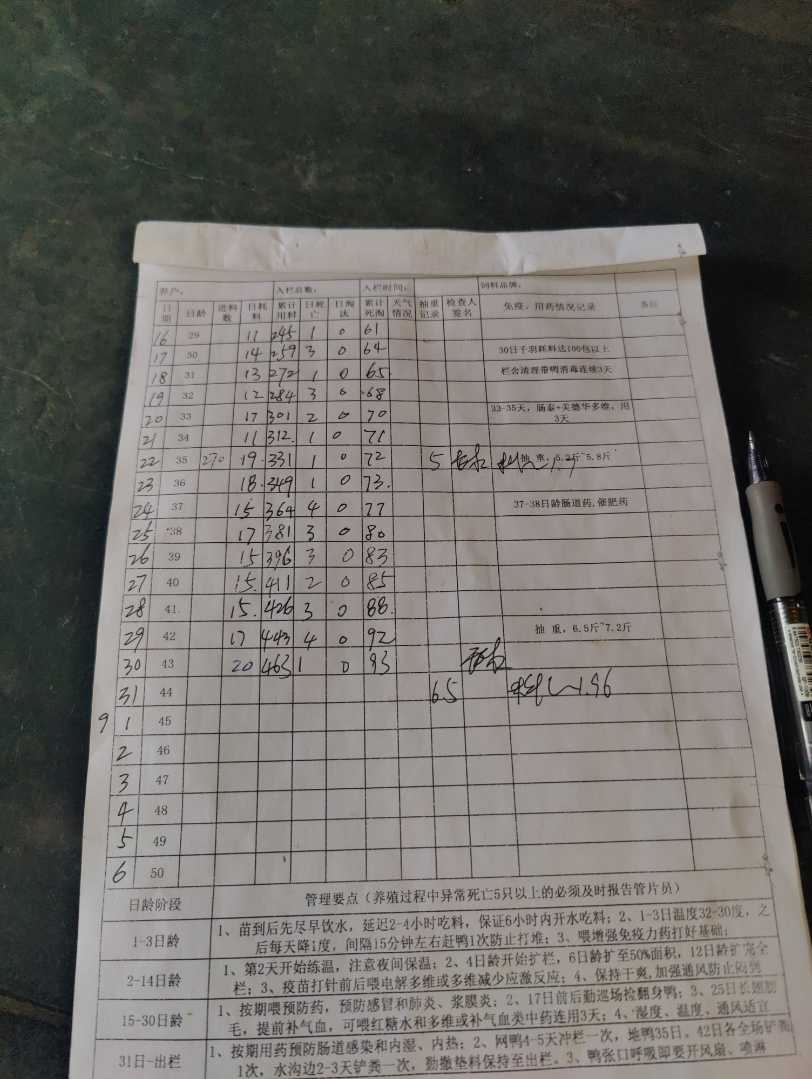 养户: 入栏总数: 入栏时间: 饲料品牌:
日期 日龄 进料数 日耗料 累计用料 日死亡 日淘汰 累计死淘 天气情况 抽重记录 检查人签名 免疫、用药情况记录 备注
16 29 11 245 1 0 61
17 30 14 259 3 0 64 30日千羽耗料达100包以上
18 31 13 272 1 0 65 栏舍清理带鸭消毒连续3天
19 32 12 284 3 0 68
20 33 17 301 2 0 70 33-35天，肠泰+美德华多维，用3天
21 34 11 312 1 0 71
22 35 270 19 331 1 0 72 5 抽 重，5.2斤~5.8斤
23 36 18 349 1 0 73
24 37 15 364 4 0 77 37-38日龄肠道药,催肥药
25 38 17 381 3 0 80
26 39 15 396 3 0 83
27 40 15 411 2 0 85
28 41 15 426 3 0 88
29 42 17 443 4 0 92 抽 重，6.5斤~7.2斤
30 43 20 463 1 0 93
31 44 6.5 1.96
9 1 45
2 46
3 47
4 48
5 49
6 50
日龄阶段 管理要点（养殖过程中异常死亡5只以上的必须及时报告管片员）
1-3日龄 1、苗到后先尽早饮水，延迟2-4小时吃料，保证6小时内开水吃料；2、1-3日温度32-30度，之
后每天降1度，间隔15分钟左右赶鸭1次防止打堆；3、喂增强免疫力药打好基础；
2-14日龄 1、第2天开始练温，注意夜间保温；2、4日龄开始扩栏，6日龄扩至50%面积，12日龄扩完全
栏；3、疫苗打针前后喂电解多维或多维减少应激反应；4、保持干爽,加强通风防止闷到
15-30日龄 1、按期喂预防药，预防感冒和肺炎、浆膜炎；2、17日前后勤巡场捡翻身鸭；3、25日长翅膀
毛，提前补气血，可喂红糖水和多维或补气血类中药连用3天；4、湿度、温度、通风适宜
31日-出栏 1、按期用药预防肠道感染和内湿、内热；2、网鸭4-5天冲栏一次，地鸭35日、42日各全场铲粪
1次，水沟边2-3天铲粪一次，勤撒垫料保持至出栏。3、鸭张口呼吸即要开风扇、喷淋